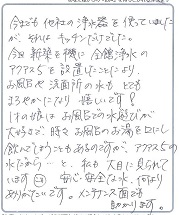 今までも他社の浄水器を使っていました
が、それはキッチンだけでした。
今回新築を機に全館浄水の
アクアスを設置したことにより、
お風呂や洗面所の水もとても
まろやかになり嬉しいです!
1才の娘はお風呂での水遊びが
大好きで時々お風呂のお湯を口にし
飲んでしまうこともあるのですが、アクアスの
水だから…と、私も大目に見られて
います 安心・安全な水、何より
ありがたいです。メンテナンス面でも
助かります。